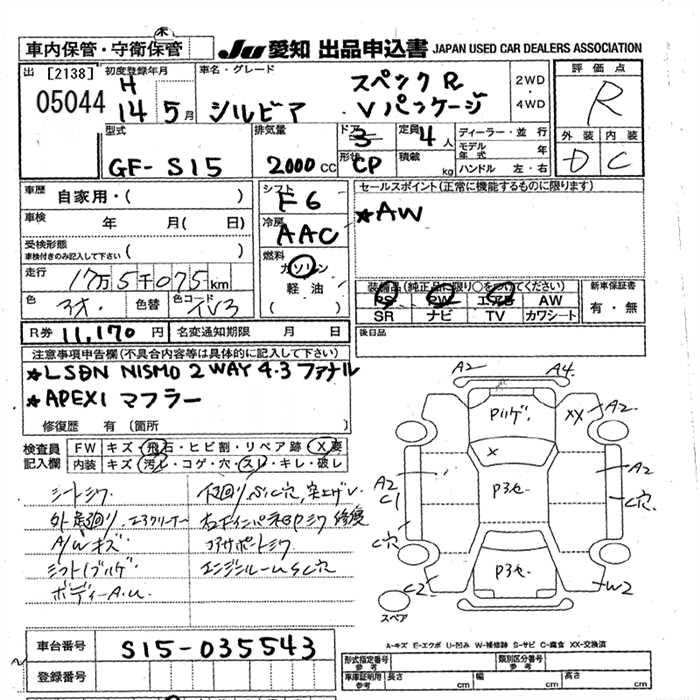 車内保管・守衛保管
JU愛知 出品申込書 JAPAN USED CAR DEALERS ASSOCIATION
出 [2138] 初度登録年月 車名・グレード 評価点
05044 H 14年5月 シルビア スペックR Vパッケージ 2WD・4WD R
型式 排気量 ドア 3 定員 4人 ディーラー・並行 外装 内装
GF-S15 2000cc 形状 CP 積載 kg モデル年式 年 D C
ハンドル 左・右
車歴 自家用・( ) シフト F6 セールスポイント(正常に機能するものに限ります)
車検 年 月( 日) 冷房 AAC ★AW
受検形態 車検付きのみ記入して下さい ( )
燃料 ガソリン
走行 17万5千075km 軽油 装備品(純正品に限り○をつけてください) 新車保証書
色 アオ. 色替 色コード TV3 ( ) RS PW エアB AW 有・無
SR ナビ TV カワシート
R券 11,170円 名変通知期限 月 日 後日品
注意事項申告欄(不具合内容等は具体的に記入して下さい)
★LSDN NISMO 2WAY 4.3 ファナル
★APEXI マフラー
修復歴 有(箇所
検査員記入欄 FW キズ・飛石・ヒビ割・リペア跡 X要
内装 キズ・汚レ・コゲ・穴・スレ・キレ・破レ
シートシワ
エアクリーナー
A/Wキズ コアサポートシワ
エンジンルームSC穴
ボディーA.U.
A2 A4
Pハゲ. XX A2
X
A2 C1 P3セ A2 C穴
C穴
P3セ
C2 W2
スペア
A-キズ E-エクボ U-凹み W-補修跡 S-サビ C-腐食 XX-交換済
車台番号 S15-035543
登録番号
形式指定番号 参考 類別区分番号 参考
車庫証明用 参考 長さ cm 幅 cm 高さ cm